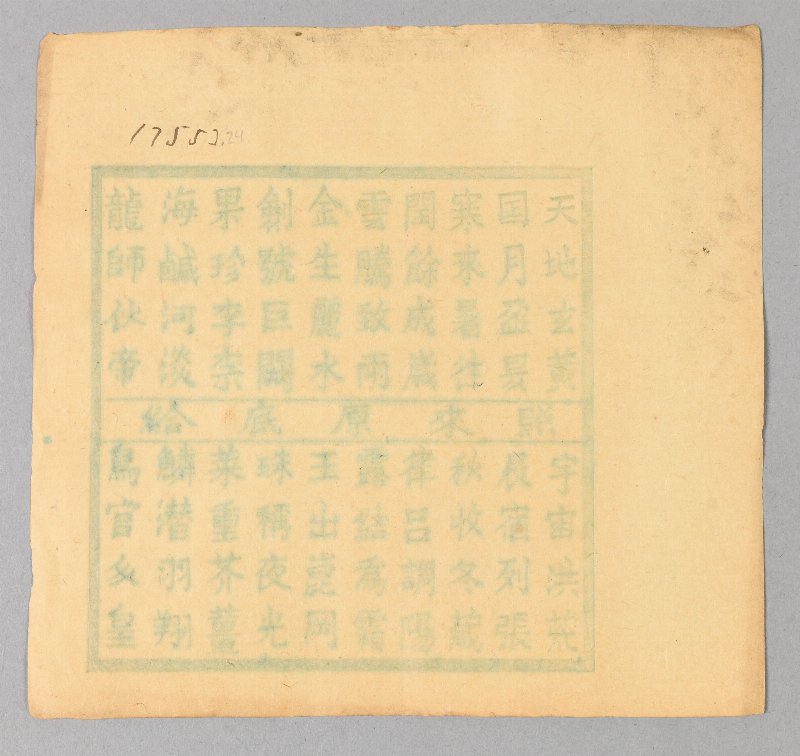 17553.24
天地玄黃
国月盈昃
寒來暑往
閏餘成歲
雲騰致雨
金生麗水
劍號巨闕
果珍李柰
海鹹河淡
龍師伙帝
照來原底給
宇宙洪荒
辰宿列張
秋收冬藏
律呂調陽
露結為霜
玉出崑岡
珠稱夜光
菜重芥薑
鱗潜羽翔
鳥官皇